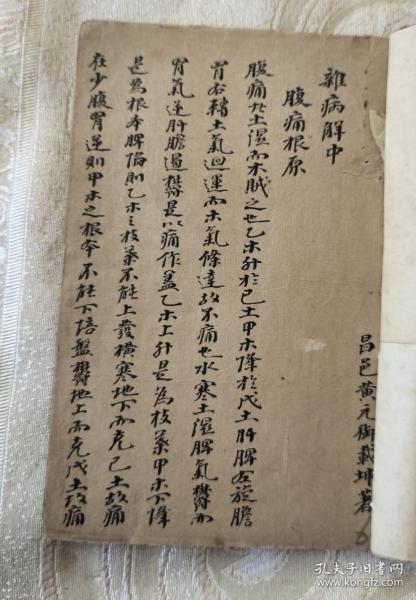 雜病解中
昌邑黃元御載坤著
腹痛根原
腹痛者土濕而木賊之也乙木升於己土甲木降於戊土肝脾左旋膽
胃右轉土氣迴運而木氣條達故不痛也水寒土濕脾氣鬱而
胃氣逆肝膽遏鬱是以痛作蓋乙木上升是為枝葉甲木下降
是為根本脾陷則乙木之枝葉不能上發橫塞地下而克己土故痛
在少腹胃逆則甲木之根本不能下培盤鬱地上而克戊土故痛
孔夫子旧书网
book.kongfz.com